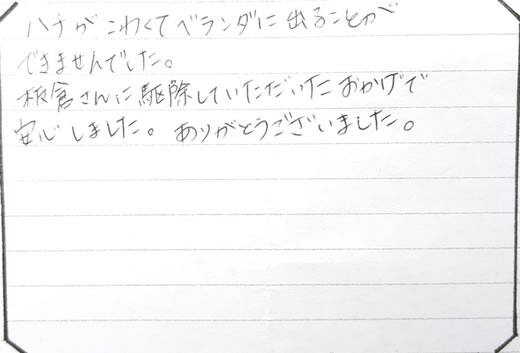 ハチがこわくてベランダに出ることが
できませんでした。
板倉さんに駆除していただいたおかげで
安心しました。ありがとうございました。